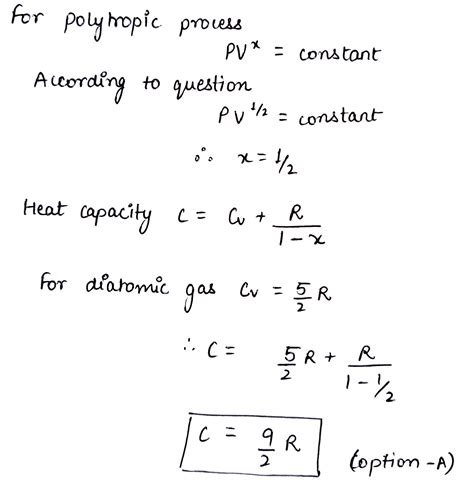 For polytropic process
PV^x = constant
According to question
PV^1/2 = constant
∴ x = 1/2
Heat capacity C = Cv + R/(1-x)
For diatomic gas Cv = 5/2 R
∴ C = 5/2 R + R/(1-1/2)
C = 9/2 R (option-A)